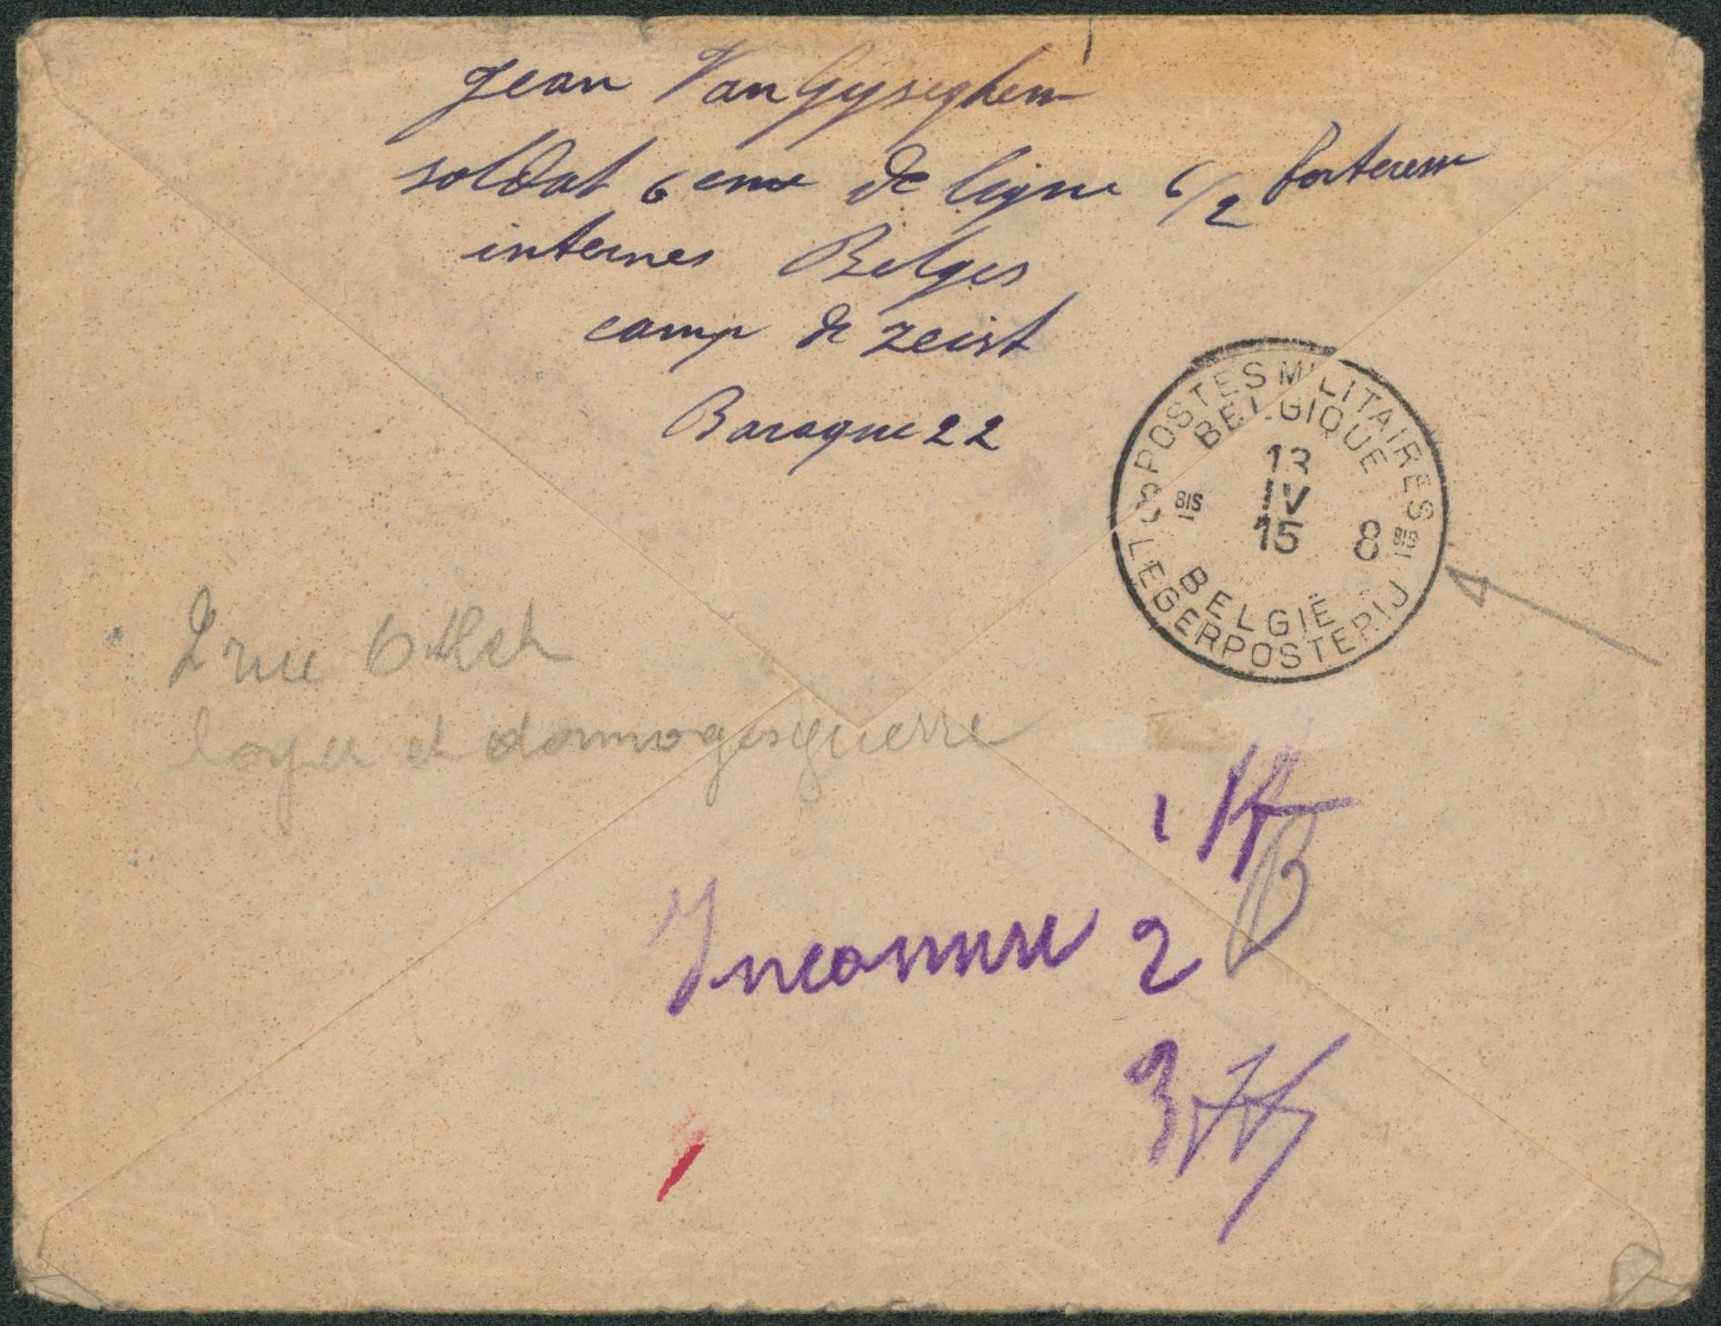 Jean Van Gyseghem
soldat 6eme de ligne 6/2 forteresse
internes Belges
camp de Zeist
Baraque 22
POSTES MILITAIRES
BELGIQUE
13
IV
15
8 BIS
8 BIS
BELGIË
LEGERPOSTERIJ
2 rue
loyer et dommages guerre
1
Inconnu 2
3